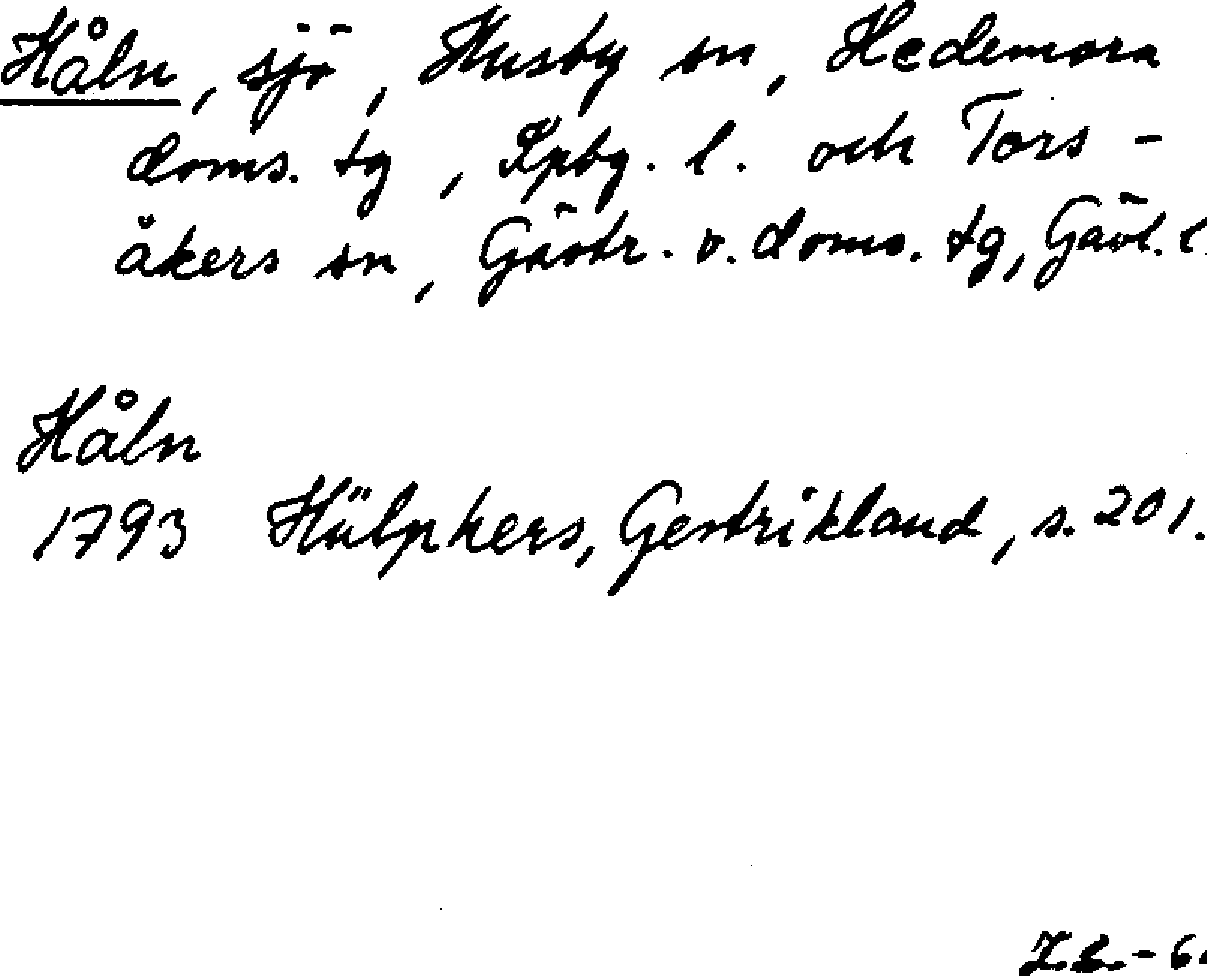 Håln, sjö, Husby sn, Hedemora
doms. tg, Kpbg. l. och Tors-
åkers sn, Gästr. v. doms. tg, Gävl. l.
Håln
1793 Hülphers, Gestrikland, s. 201.